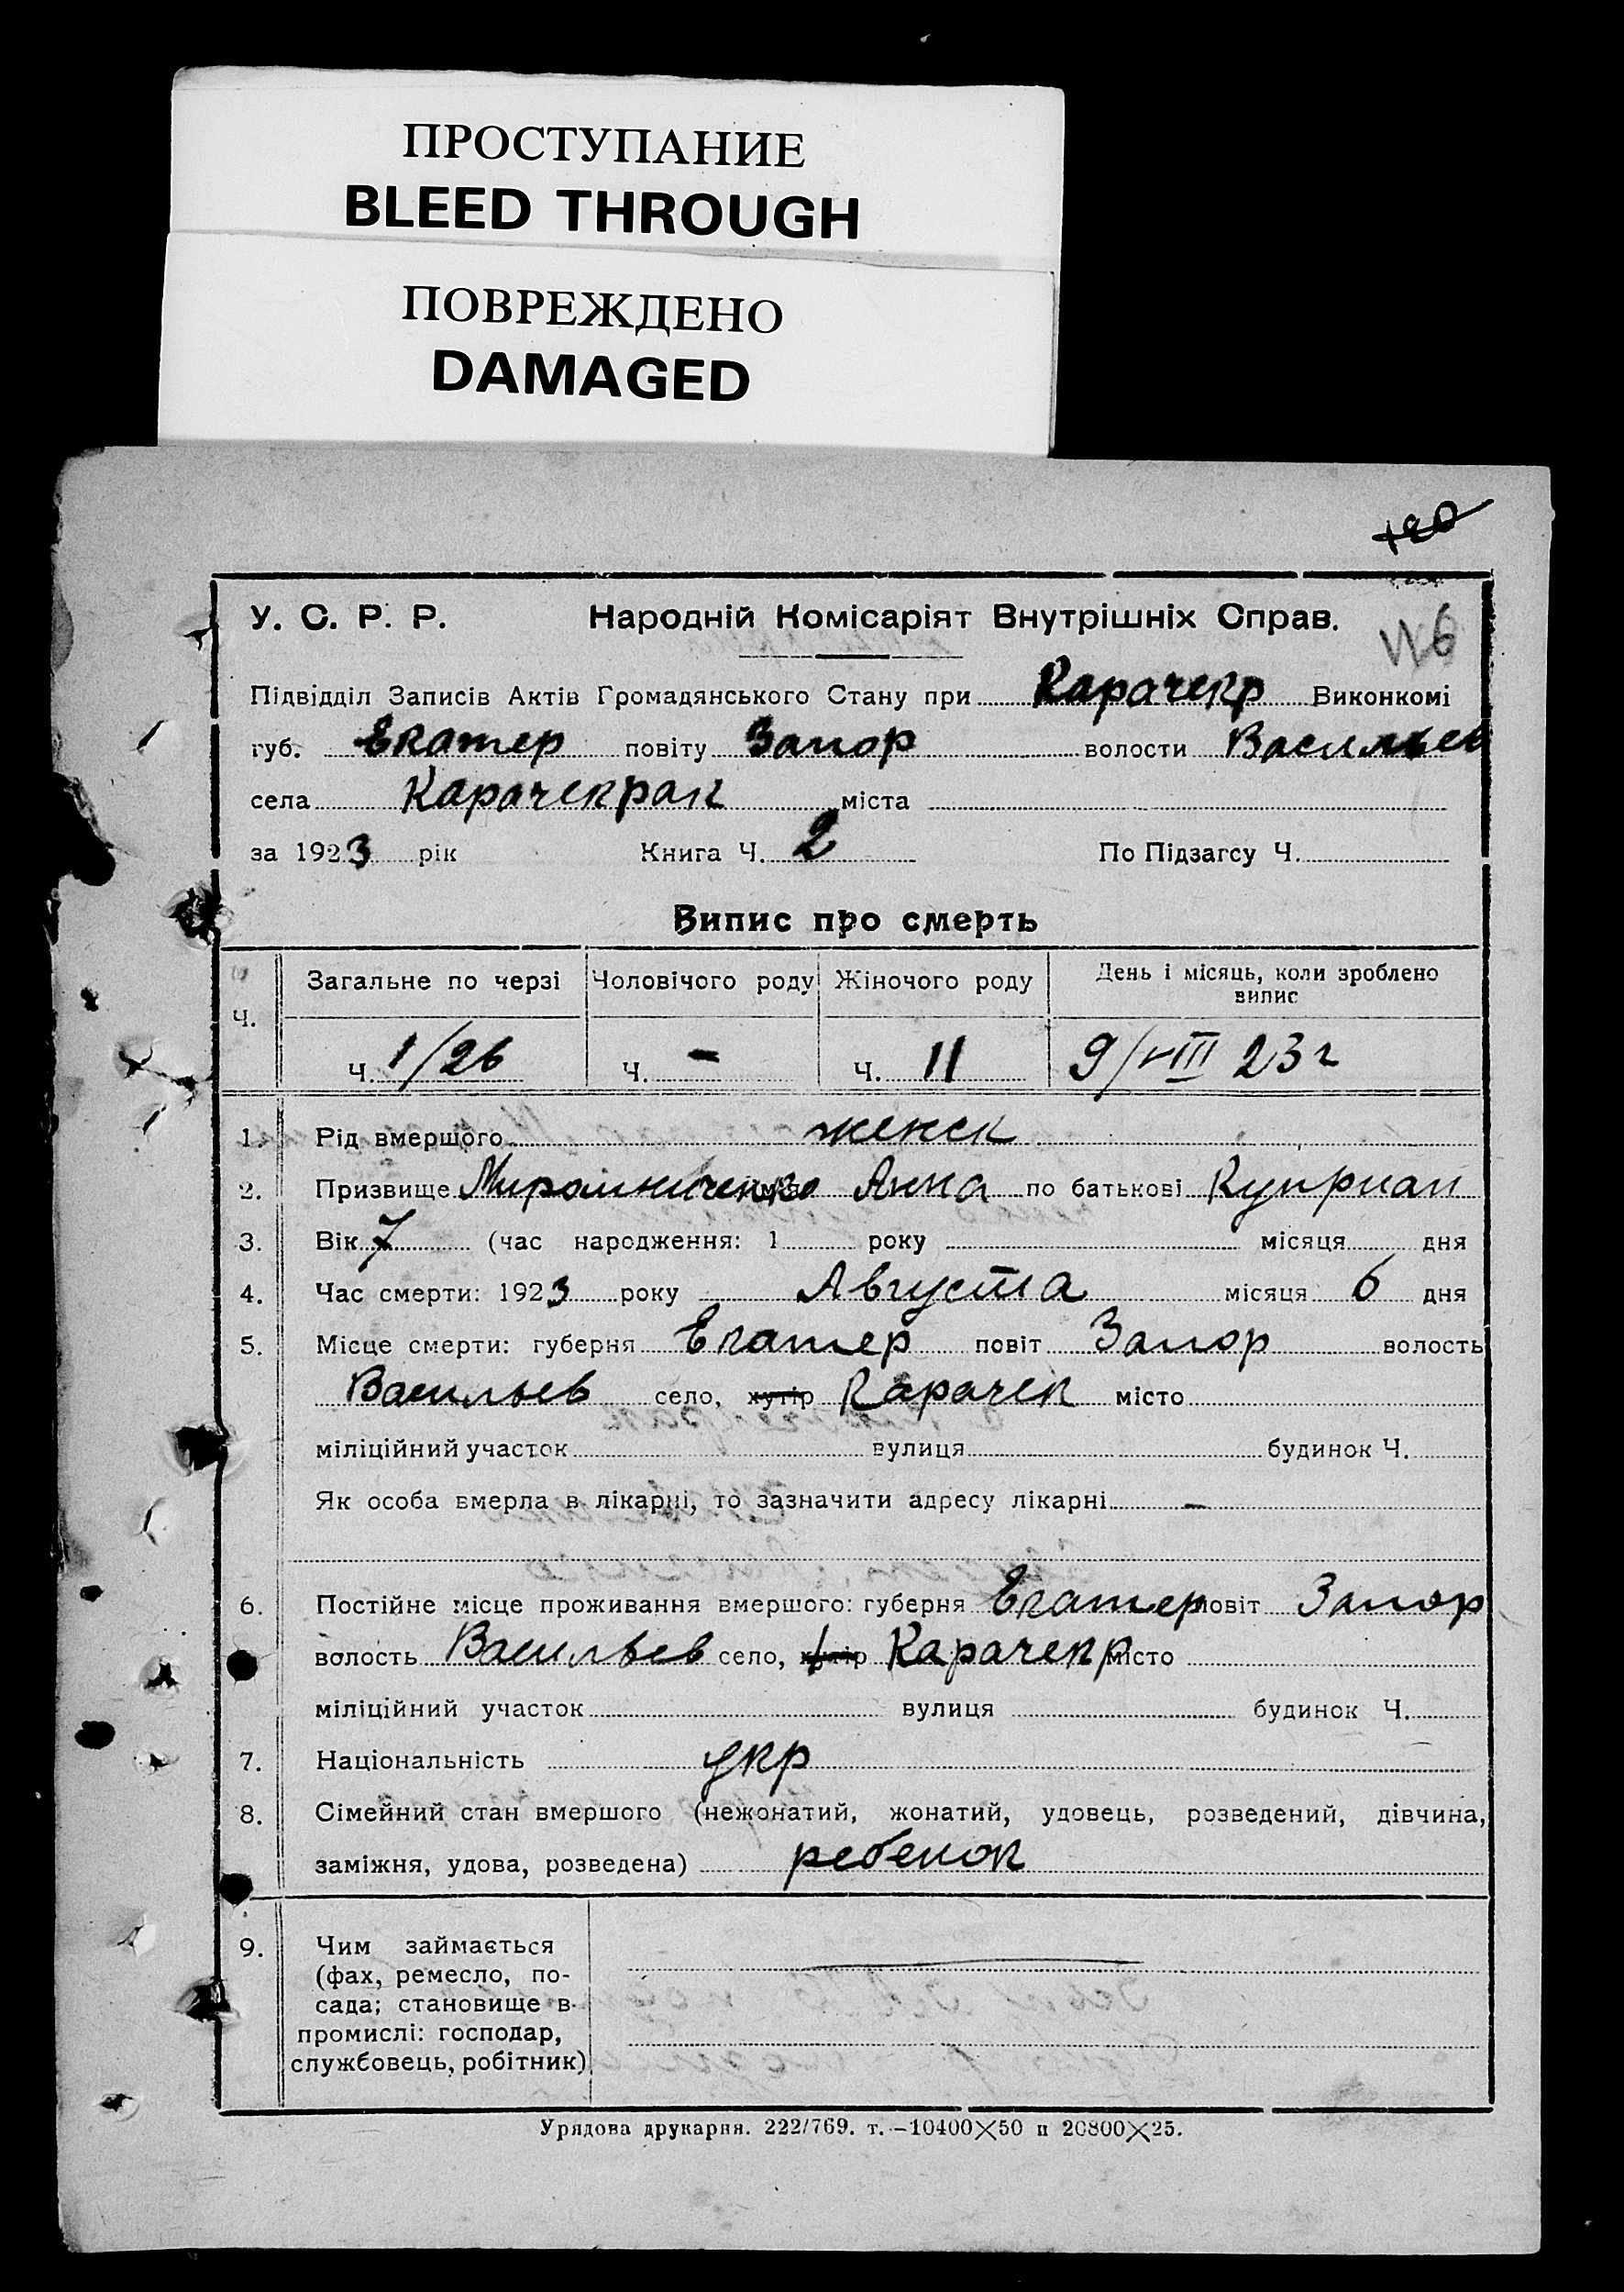 ПРОСТУПАНИЕ
BLEED THROUGH
ПОВРЕЖДЕНО
DAMAGED
У. С. Р. Р. Народній Комісаріят Внутрішніх Справ.
Підвідділ Записів Актів Громадянського Стану при Карачекр Виконкомі
губ. Екатер повіту Запор волости Васильев
села Карачекрак міста
за 1923 рік Книга Ч. 2 По Підзагсу Ч.
Випис про смерть
Ч. Загальне по черзі Чоловічого роду Жіночого роду День і місяць, коли зроблено випис
Ч. 1/26 Ч. - Ч. 11 9/VIII 23 г
1. Рід вмершого женск
2. Призвище Мирошниченко Анна по батькові Куприан
3. Вік 7 (час народження: 1 року місяця дня
4. Час смерти: 1923 року Августа місяця 6 дня
5. Місце смерти: губерня Екатер повіт Запор волость
Васильев село, хутір Карачек місто
міліційний участок вулиця будинок Ч.
Як особа вмерла в лікарні, то зазначити адресу лікарні -
6. Постійне місце проживання вмершого: губерня Екатер повіт Запор
волость Васильев село, хутір Карачекр місто
міліційний участок вулиця будинок Ч.
7. Національність укр
8. Сімейний стан вмершого (нежонатий, жонатий, удовець, розведений, дівчина,
заміжня, удова, розведена) ребенок
9. Чим займається
(фах, ремесло, по-
сада; становище в
промислі: господар,
службовець, робітник)
Урядова друкарня. 222/769. т.—10400×50 п 20800×25.